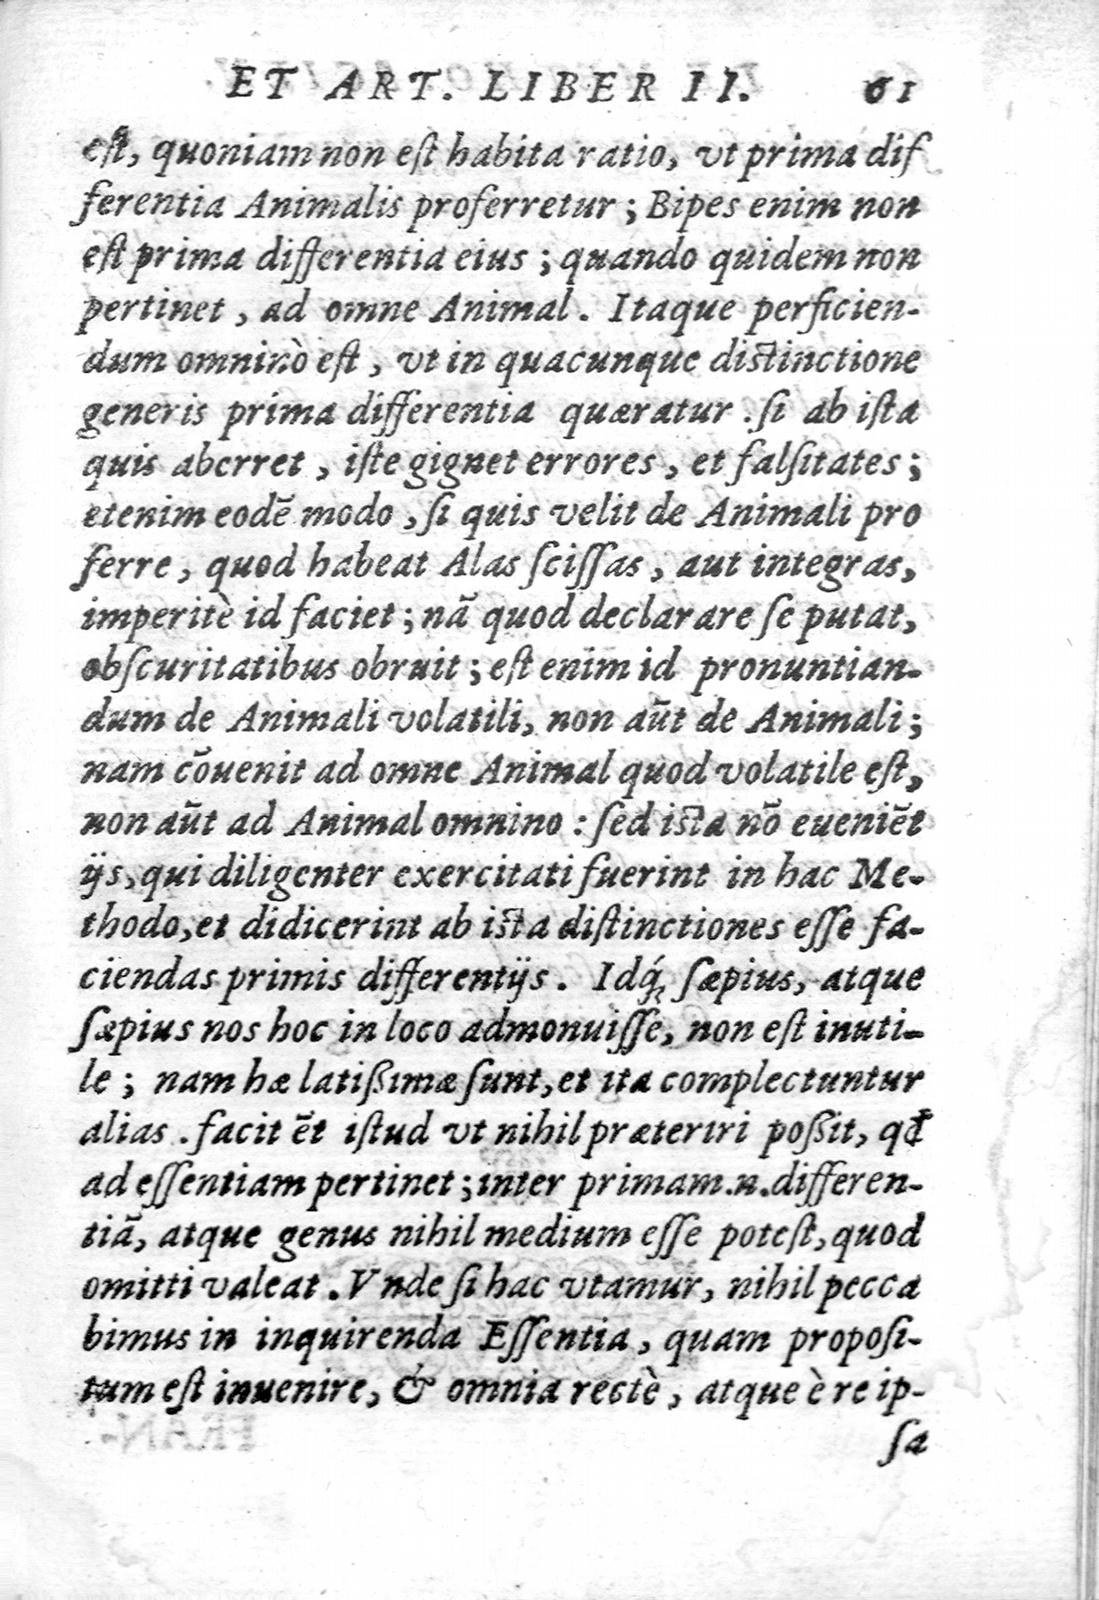 ET ART. LIBER II. 61
est, quoniam non est habita ratio, vt prima dif
ferentia Animalis proferretur; Bipes enim non
est prima differentia eius; quando quidem non
pertinet, ad omne Animal. Itaque perficien-
dum omninò est, vt in quacunque distinctione
generis prima differentia quæratur. si ab ista
quis aberret, iste gignet errores, et falsitates;
etenim eodē modo, si quis velit de Animali pro
ferre, quod habeat Alas scissas, aut integras,
imperitè id faciet; nā quod declarare se putat,
obscuritatibus obruit; est enim id pronuntian-
dum de Animali volatili, non aūt de Animali;
nam cōuenit ad omne Animal quod volatile est,
non aūt ad Animal omnino: sed ista nō eueniēt
ijs, qui diligenter exercitati fuerint in hac Me-
thodo, et didicerint ab ista distinctiones esse fa-
ciendas primis differentijs. Idq́; sæpius, atque
sæpius nos hoc in loco admonuisse, non est inuti-
le; nam hæ latißimæ sunt, et ita complectuntur
alias. facit ēt istud vt nihil præteriri poßit, qđ
ad essentiam pertinet; inter primam.n.differen-
tiā, atque genus nihil medium esse potest, quod
omitti valeat. Vnde si hac vtamur, nihil pecca
bimus in inquirenda Essentia, quam proposi-
tum est inuenire, & omnia rectè, atque è re ip-
sa